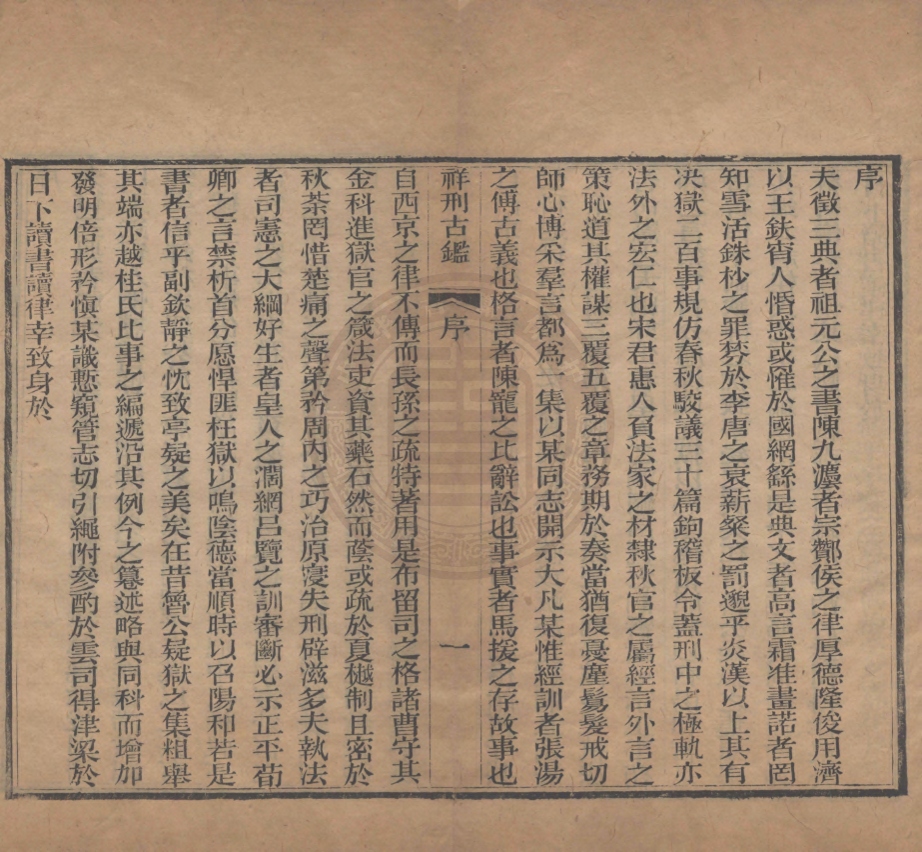 序
夫徵三典者祖元公之書陳九灋者宗酇侯之律厚德隆俊用濟
以王鈇宵人惛惑或罹於國網繇是典文者高言霜准畫諾者罔
知雪活銖杪之罪棼於李唐之衰薪粲之罰邈乎炎漢以上其有
决獄二百事規仿春秋駁議三十篇鉤稽板令蓋刑中之極軌亦
法外之宏仁也宋君惠人負法家之材隸秋官之屬經言外言之
策恥道其權謀三覆五覆之章務期於奏當猶復憂塵鬒髮戒切
師心博采羣言都爲一集以某同志開示大凡某惟經訓者張湯
之傅古義也格言者陳寵之比辭訟也事實者馬援之存故事也
祥刑古鑑 序 一
自西京之律不傳而長孫之疏特著用是布留司之格諸曹守其
金科進獄官之箴法吏資其藥石然而蔭或疏於夏樾制且密於
秋荼罔惜楚痛之聲第矜周內之巧治原寖失刑辟滋多夫執法
者司憲之大綱好生者皇人之濶網呂覽之訓審斷必示正平荀
卿之言禁析首分愿悍匪枉獄以鳴陰德當順時以召陽和若是
書者信乎副欽靜之忱致亭疑之美矣在昔魯公疑獄之集粗舉
其端亦越桂氏比事之編遞沿其例今之篡述略與同科而增加
發明倍形矜愼某識慙窺管志切引繩附參酌於雲司得津梁於
日下讀書讀律幸致身於